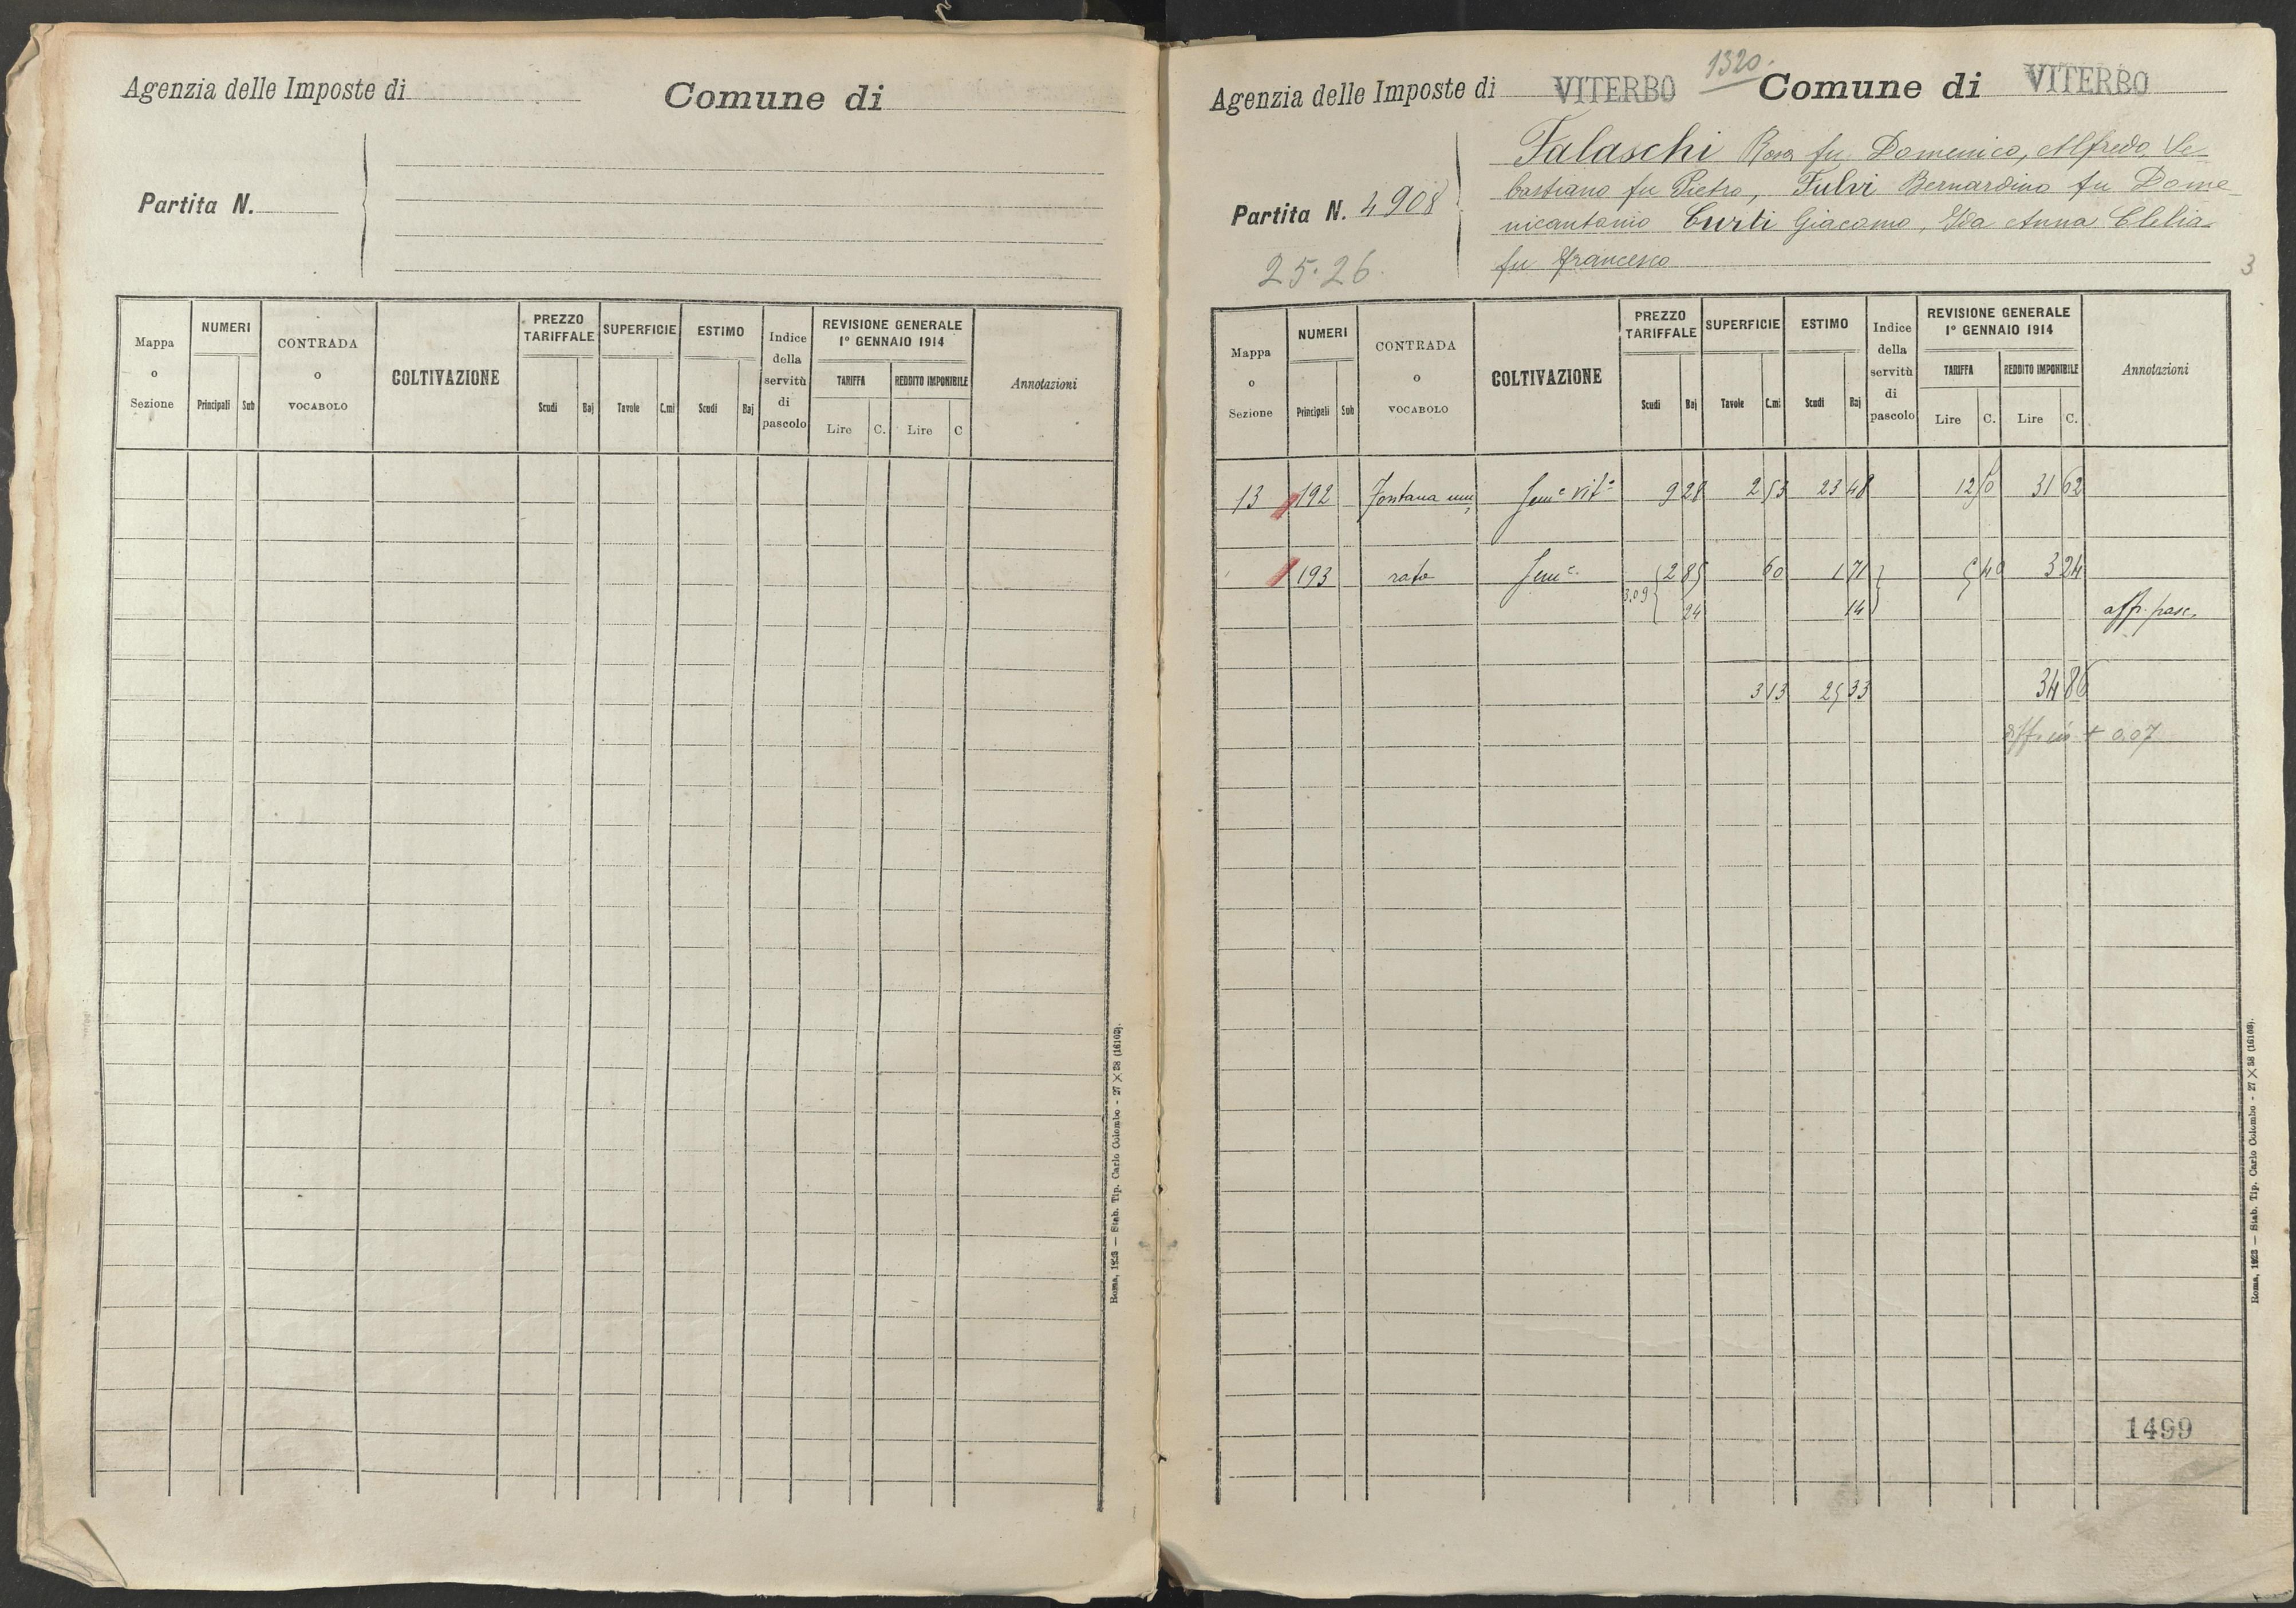 Agenzia delle Imposte di
Comune di
Partita N.
Mappa o Sezione
NUMERI
Principali Sub
CONTRADA o VOCABOLO
COLTIVAZIONE
PREZZO TARIFFALE
Scudi Baj
SUPERFICIE
Tavole C.mi
ESTIMO
Scudi Baj
Indice della servitù di pascolo
REVISIONE GENERALE
1º GENNAIO 1914
TARIFFA
Lire C.
REDDITO IMPONIBILE
Lire C
Annotazioni
Roma, 1923 — Stab. Tip. Carlo Colombo - 27 X 38 (16103).
1320.
Agenzia delle Imposte di VITERBO Comune di VITERBO
Partita N. 4908
25.26.
Falaschi Rosa fu Domenico, Alfredo, Se
bastiano fu Pietro, Fulvi Bernardino fu Dome
nicantonio Curti Giacomo, Ida Anna Clelia
fu Francesco
3
Mappa o Sezione
NUMERI
Principali Sub
CONTRADA o VOCABOLO
COLTIVAZIONE
PREZZO TARIFFALE
Scudi Baj
SUPERFICIE
Tavole C.mi
ESTIMO
Scudi Baj
Indice della servitù di pascolo
REVISIONE GENERALE
1º GENNAIO 1914
TARIFFA
Lire C.
REDDITO IMPONIBILE
Lire C.
Annotazioni
13 192 Fontana mu, Semc vita 9 28 2 53 23 48 12 50 31 62
193 rata Semc. 2 85 60 1 71 5 40 3 24
3.09 24 14 aff. pasc.
3 13 25 33 34 86
+ 0.07
1499
Roma, 1923 — Stab. Tip. Carlo Colombo - 27 X 38 (16103).